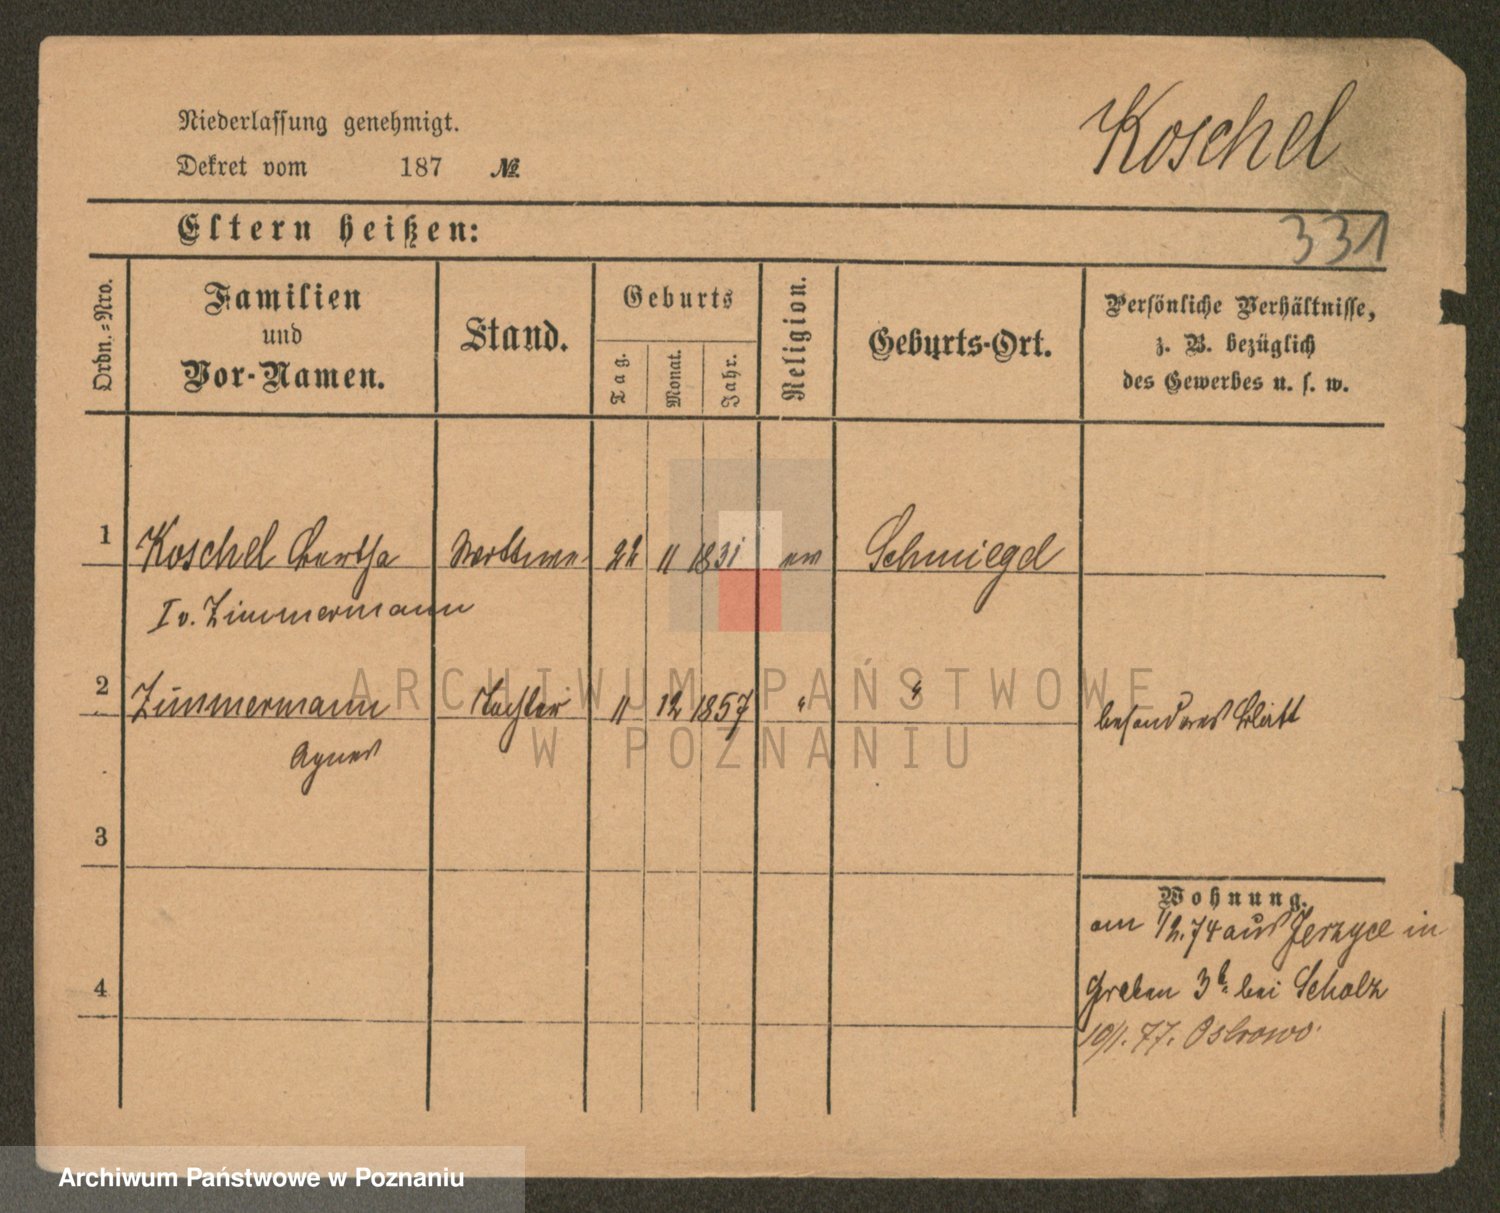 Koschel
Niederlassung genehmigt.
Dekret vom 187 №
331
Eltern heißen:
Ordn.=Nro.
Familien
und
Vor-Namen.
Stand.
Geburts
Tag.
Monat.
Jahr.
Religion.
Geburts-Ort.
Persönliche Verhältnisse,
z. B. bezüglich
des Gewerbes u. s. w.
1 Koschel Bertha Wittwe 22 11 1831 ev Schmiegel
I v. Zimmermann
2 Zimmermann Tochter 11 12 1857 " " besonderes Blatt
Agnes
3
4
Wohnung.
am 1/2.74 aus Jerzyce in
Graben 3b. bei Scholz
10/1. 77. Ostrowo
ARCHIWUM PAŃSTWOWE
W POZNANIU
Archiwum Państwowe w Poznaniu